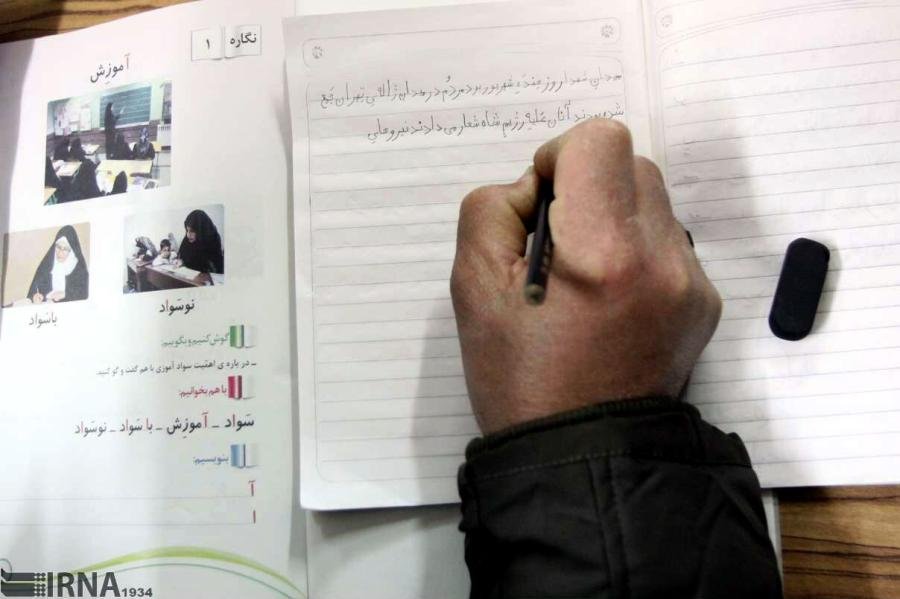 نگاره ۱
آموزش
نوسواد
باسواد
گوش کنیم و بگوییم:
ـ درباره ی اهمّیت سواد آموزی با هم گفت و گو کنید.
با هم بخوانیم:
سَواد ـ آموزِش ـ با سَواد ـ نوسَواد
بنویسیم:
آ
ا
میدان شهدا روز جمعه شهریور بود مردم در میدان ژاله ی تهران جمع
شده بودند آنان علیه رژیم شاه شعار می دادند نیروهای
IRNA 1934